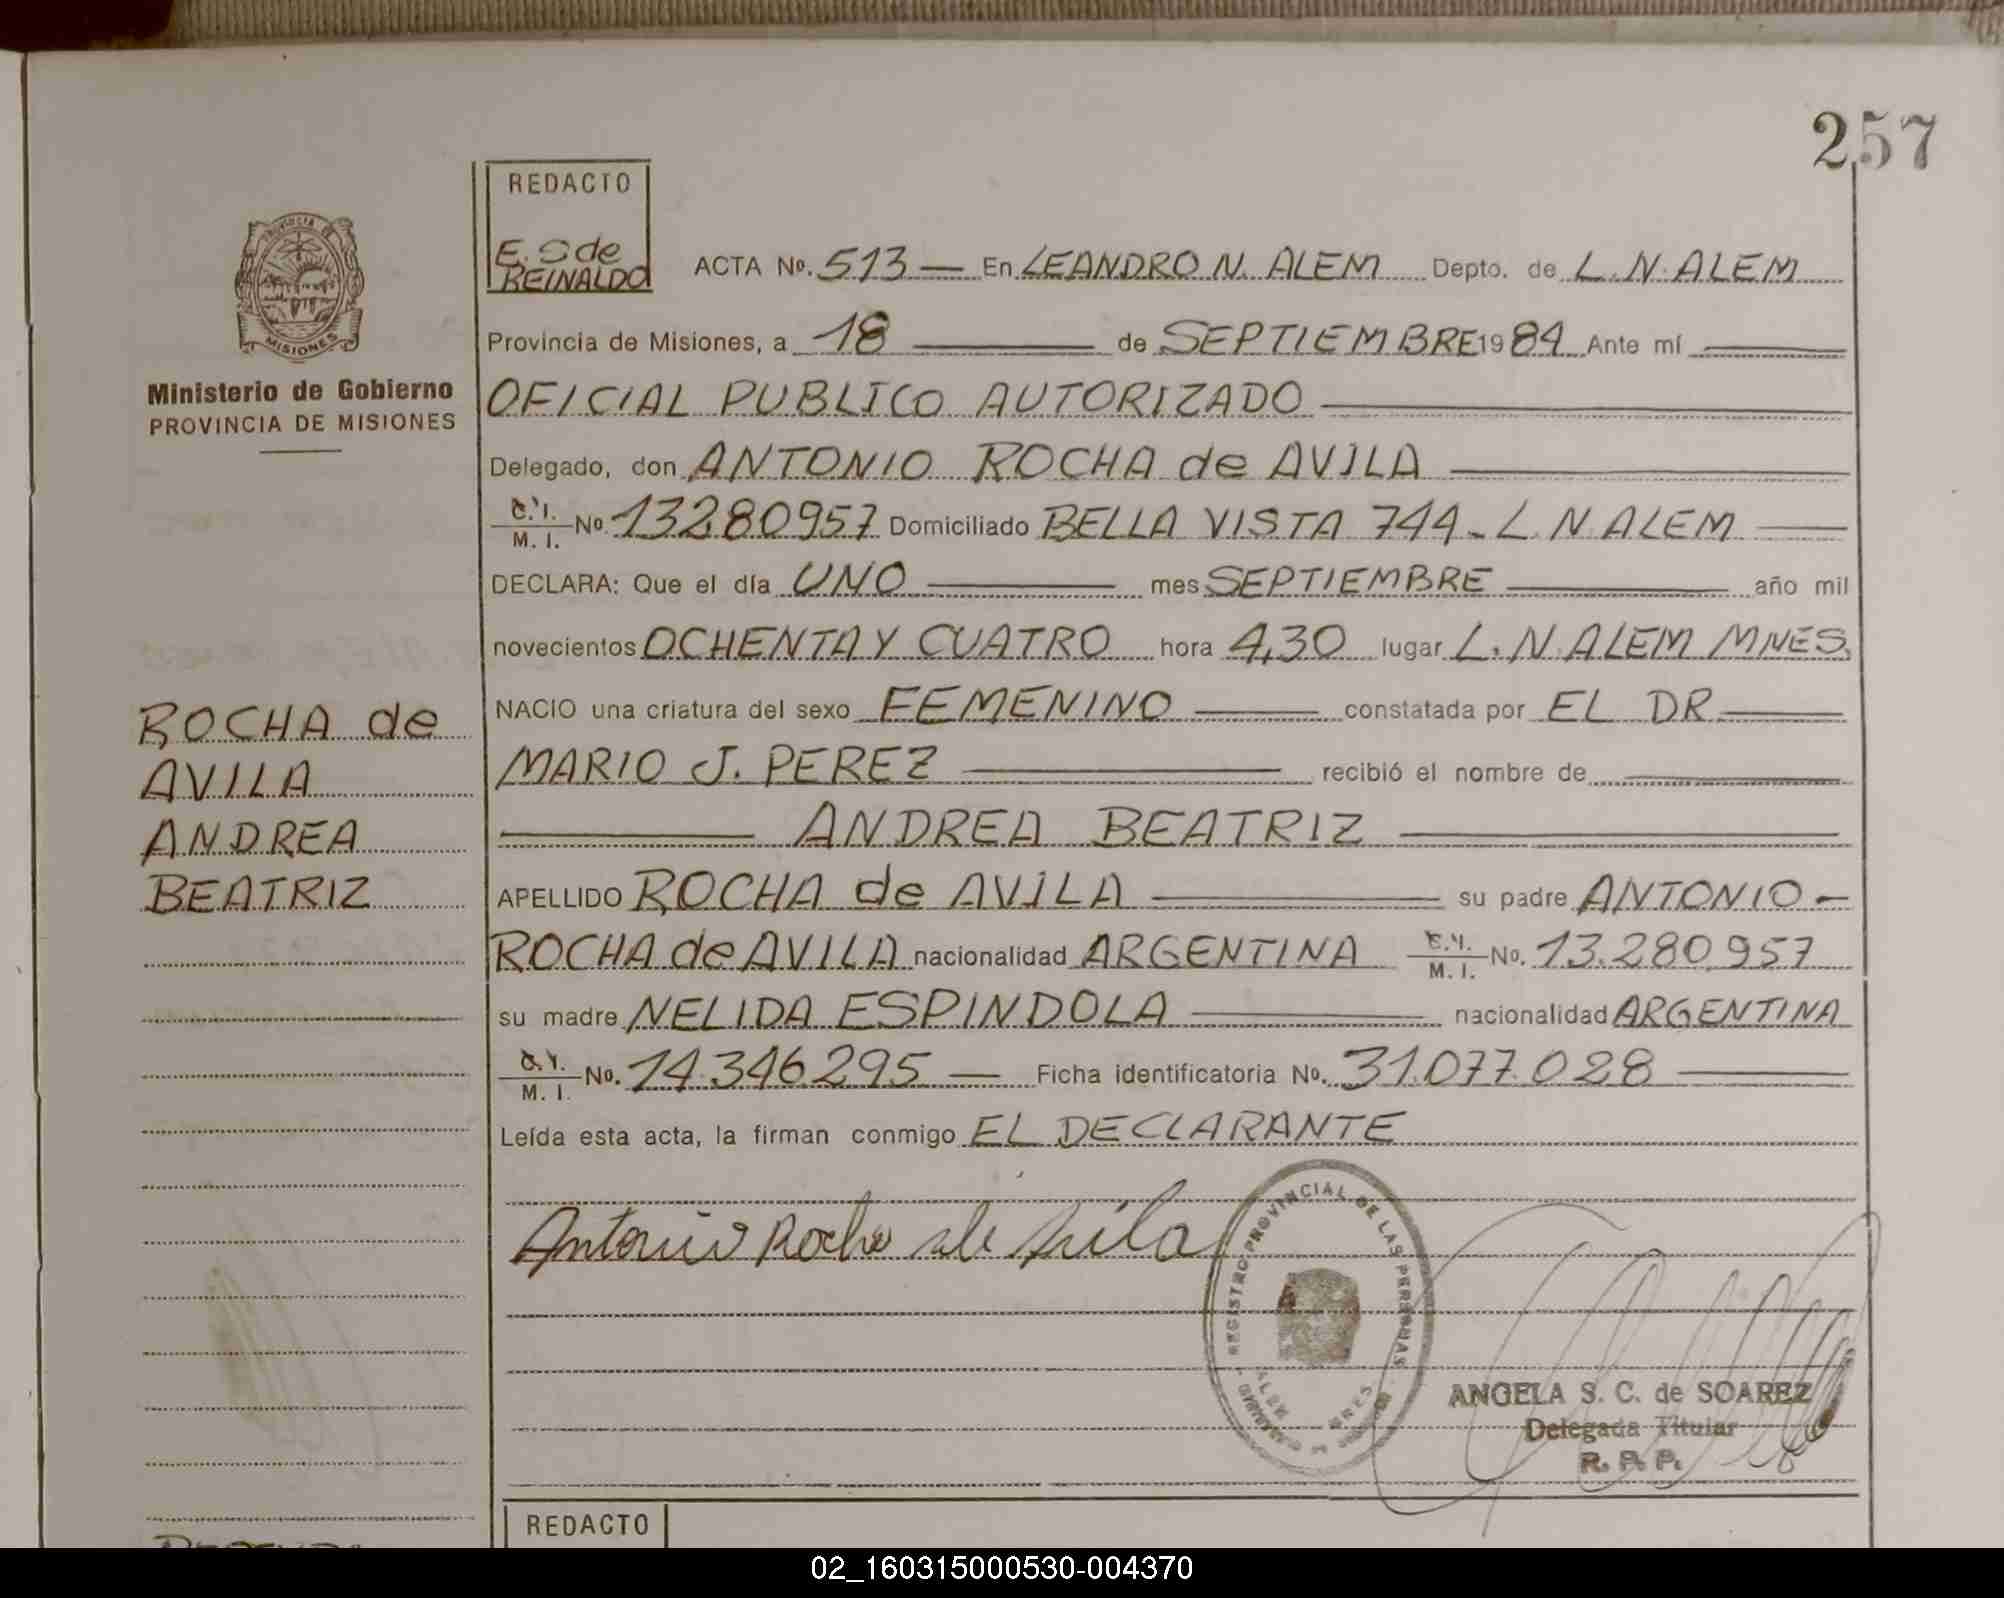 257
REDACTO
E. S de
REINALDO
PROVINCIA DE
MISIONES
Ministerio de Gobierno
PROVINCIA DE MISIONES
ROCHA de
AVILA
ANDREA
BEATRIZ
ACTA Nº. 513 — En LEANDRO N. ALEM Depto. de L.N. ALEM
Provincia de Misiones, a 18 de SEPTIEMBRE 1984 Ante mí
OFICIAL PUBLICO AUTORIZADO
Delegado, don ANTONIO ROCHA de AVILA
C. I. M. I. Nº 13280957 Domiciliado BELLA VISTA 744 - L.N ALEM
DECLARA: Que el día UNO mes SEPTIEMBRE año mil
novecientos OCHENTA Y CUATRO hora 4,30 lugar L.N. ALEM MNES.
NACIO una criatura del sexo FEMENINO constatada por EL DR
MARIO J. PEREZ recibió el nombre de
ANDREA BEATRIZ
APELLIDO ROCHA de AVILA su padre ANTONIO -
ROCHA de AVILA nacionalidad ARGENTINA C. I. M. I. Nº. 13.280.957
su madre NELIDA ESPINDOLA nacionalidad ARGENTINA
C. I. M. I. Nº. 14.346.295 — Ficha identificatoria Nº. 31.077.028
Leída esta acta, la firman conmigo EL DECLARANTE
Antonio Rocha de Avila
REGISTRO PROVINCIAL DE LAS PERSONAS
ALEM MNES
ANGELA S. C. de SOAREZ
Delegada Titular
R. P. P.
REDACTO
02_160315000530-004370